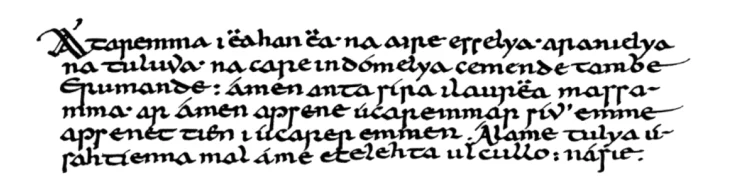 Átaremma i ëa han ëa · na aire esselya · aranielya
na tuluva · na care indómelya cemende tambe
Erumande : ámen anta síra ilaurëa massa-
mma · ar ámen apsene úcaremmar sív' emme
apsenet tien i úcarer emmen . Álame tulya ú-
sahtienna mal áme etelehta ulcullo : násie :